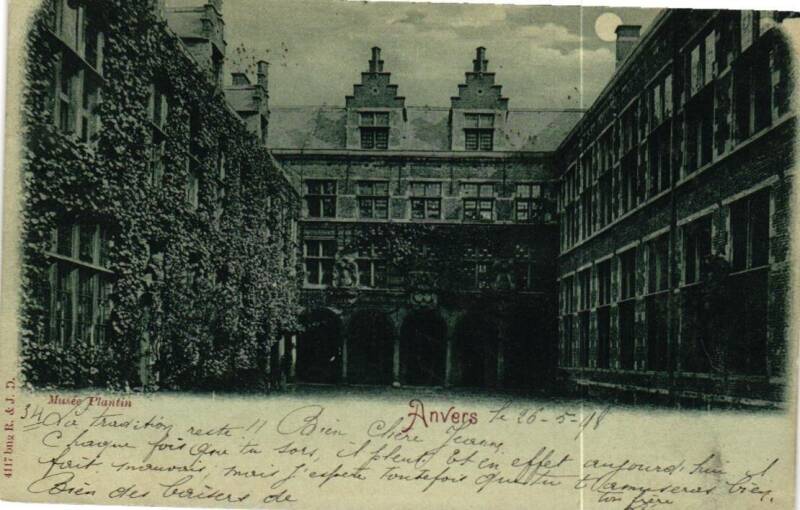 Musée Plantin
Anvers le 26-5-98
34 La tradition reste !! Bien chère Jeanne,
Chaque fois que tu sors, il pleut. Et en effet aujourd'hui il
fait mauvais, mais j'espère toutefois que tu t'amuseras bien.
Bien des baisers de ton frère
4117 bng R. & J. D.